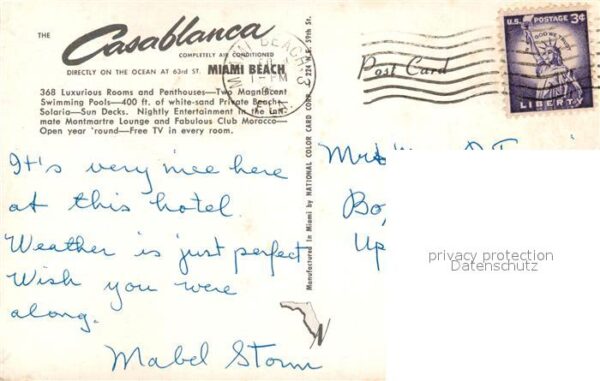 THE
Casablanca
COMPLETELY AIR CONDITIONED
DIRECTLY ON THE OCEAN AT 63rd ST. MIAMI BEACH
368 Luxurious Rooms and Penthouses—Two Magnificent
Swimming Pools—400 ft. of white-sand Private Beach—
Solaria—Sun Decks. Nightly Entertainment in the Inti-
mate Montmartre Lounge and Fabulous Club Morocco—
Open year 'round—Free TV in every room.
It's very nice here
at this hotel.
Weather is just perfect
Wish you were
along.
Mabel Storm
Manufactured in Miami by NATIONAL COLOR CARD CORP. 224 N.E. 59th St.
MIAMI BEACH
Post Card
U.S. POSTAGE 3¢
IN GOD WE TRUST
LIBERTY
Bo
Up
privacy protection
Datenschutz